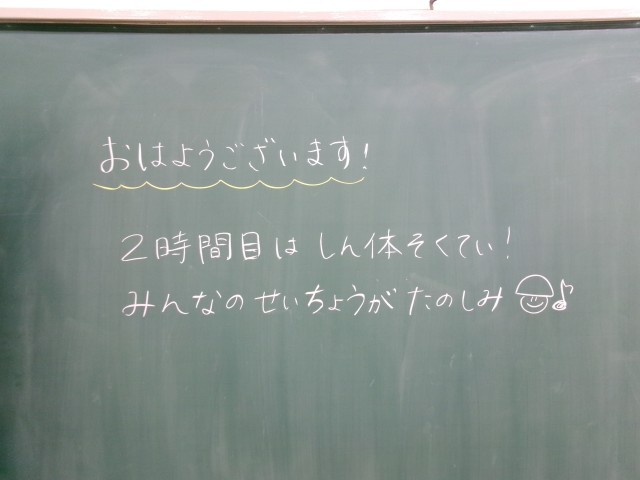 おはようございます!
2時間目は しん体そくてい!
みんなの せいちょうが たのしみ♪